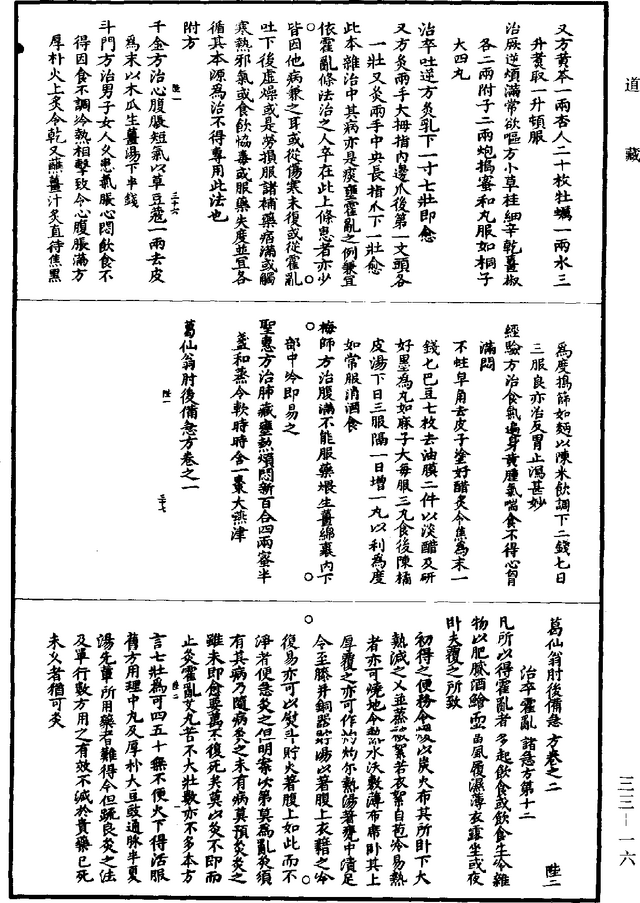 道藏
又方黃芩一兩杏人二十枚牡蠣一兩水三
升煮取一升頓服
治厥逆煩滿常欲嘔方小草桂細辛乾薑椒
各二兩附子二兩炮搗蜜和丸服如桐子
大四丸
治卒吐逆方灸乳下一寸七壯即愈
又方灸兩手大拇指內邊爪後第一文頭各
一壯又灸兩手中央長指爪下一壯愈
此本雜治中其病亦是痰壅霍亂之例兼宜
依霍亂條法治之人卒在此上條患者亦少
皆因他病兼之耳或從傷寒未復或從霍亂
吐下後虛燥或是勞損服諸補藥痞滿或觸
寒熱邪氣或食飲協毒或服藥失度並宜各
循其本源為治不得專用此法也
附方
千金方治心腹脹短氣以草豆蔻一兩去皮
為末以木瓜生薑湯下半錢
斗門方治男子女人久患氣脹心悶飲食不
得因食不調冷熱相擊致令心腹脹滿方
厚朴火上炙令乾又蘸薑汁炙直待焦黑
陸一
三十六
為度搗篩如麵以陳米飲調下二錢七日
三服良亦治反胃止瀉甚妙
經驗方治食氣遍身黃腫氣喘食不得心胸
滿悶
不蛀皁角去皮子塗好醋炙令焦為末一
錢七巴豆七枚去油膜二件以淡醋及研
好墨為丸如麻子大每服三丸食後陳橘
皮湯下日三服隔一日增一丸以利為度
如常服消酒食
梅師方治腹滿不能服藥煨生薑綿裹內下
部中冷即易之
聖惠方治肺藏壅熱煩悶新百合四兩蜜半
盞和蒸令軟時時含一棗大嚥津
葛仙翁肘後備急方卷之一
陸一
三十七
葛仙翁肘後備急方卷之二
陸二
治卒霍亂諸急方第十二
凡所以得霍亂者多起飲食或飲食生冷雜
物以肥膩酒鱠而當風履濕薄衣露坐或夜
臥失覆之所致
初得之便務令暖以炭火布其所臥下大
熱減之又並蒸被絮若衣絮自苞冷易熱
者亦可燒地令熱水沃敷薄布席臥其上
厚覆之亦可作灼灼爾熱湯著甕中漬足
令至膝并銅器貯湯以著腹上衣藉之冷
復易亦可以熨斗貯火著腹上如此而不
淨者便急灸之但明案次第莫為亂灸須
有其病乃隨病灸之未有病莫預灸灸之
雖未即愈要萬不復死矣莫以灸不即而
止灸霍亂艾丸苦不大壯數亦不多本方
言七壯為可四五十無不便火下得活服
舊方用理中丸及厚朴大豆豉通脈半夏
湯先輩所用藥者難得今但疏良灸之法
及單行數方用之有效不減於貴藥已死
未久者猶可灸
陸二
三三—一六